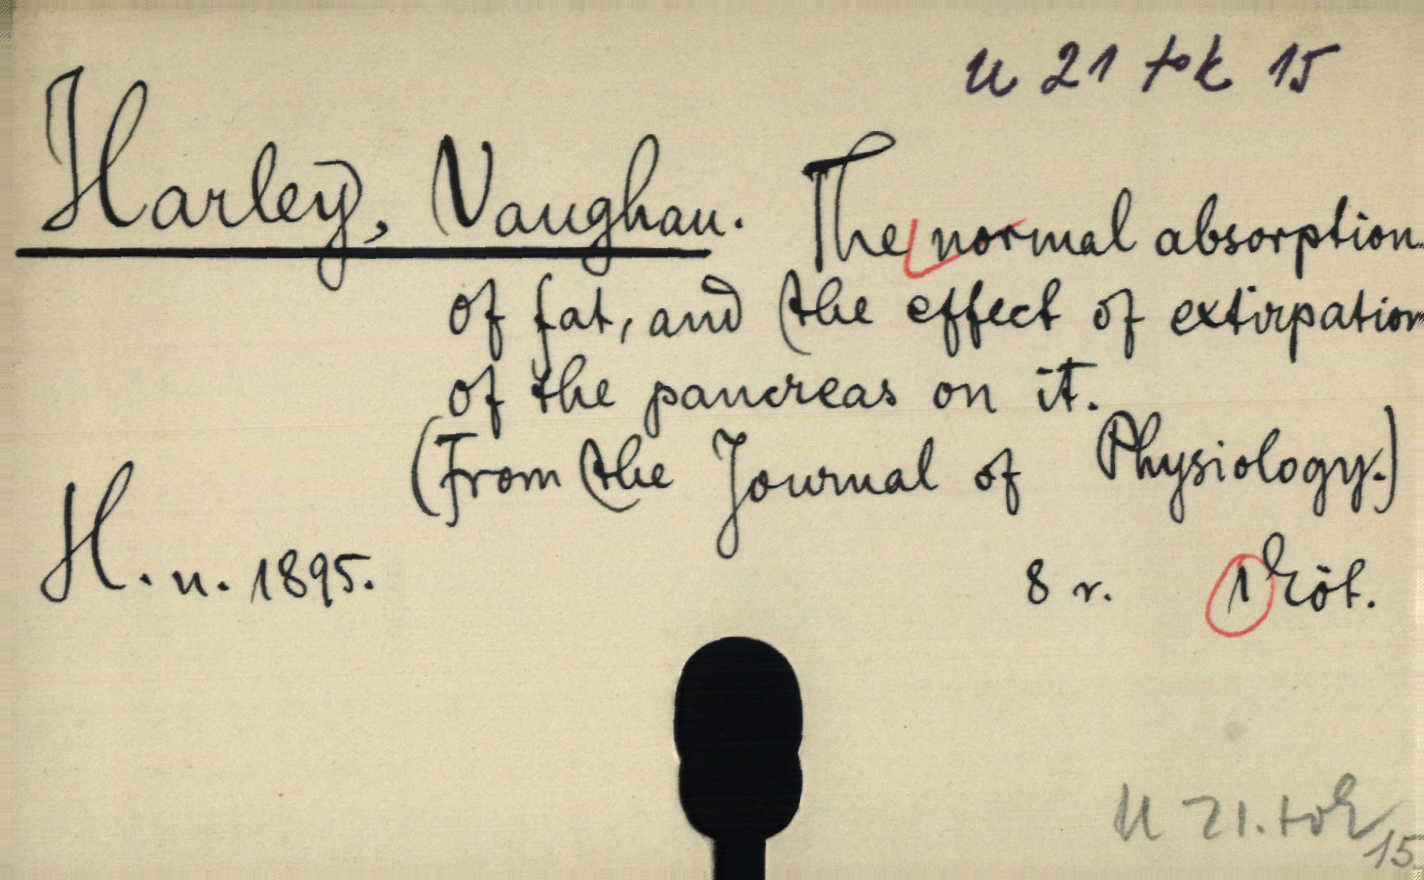 U 21 tok 15
Harley, Vaughan. The normal absorption
of fat, and the effect of extirpation
of the pancreas on it.
(From the Journal of Physiology.)
H. n. 1895. 8 r. 1 köt.
U 21. tok 15.